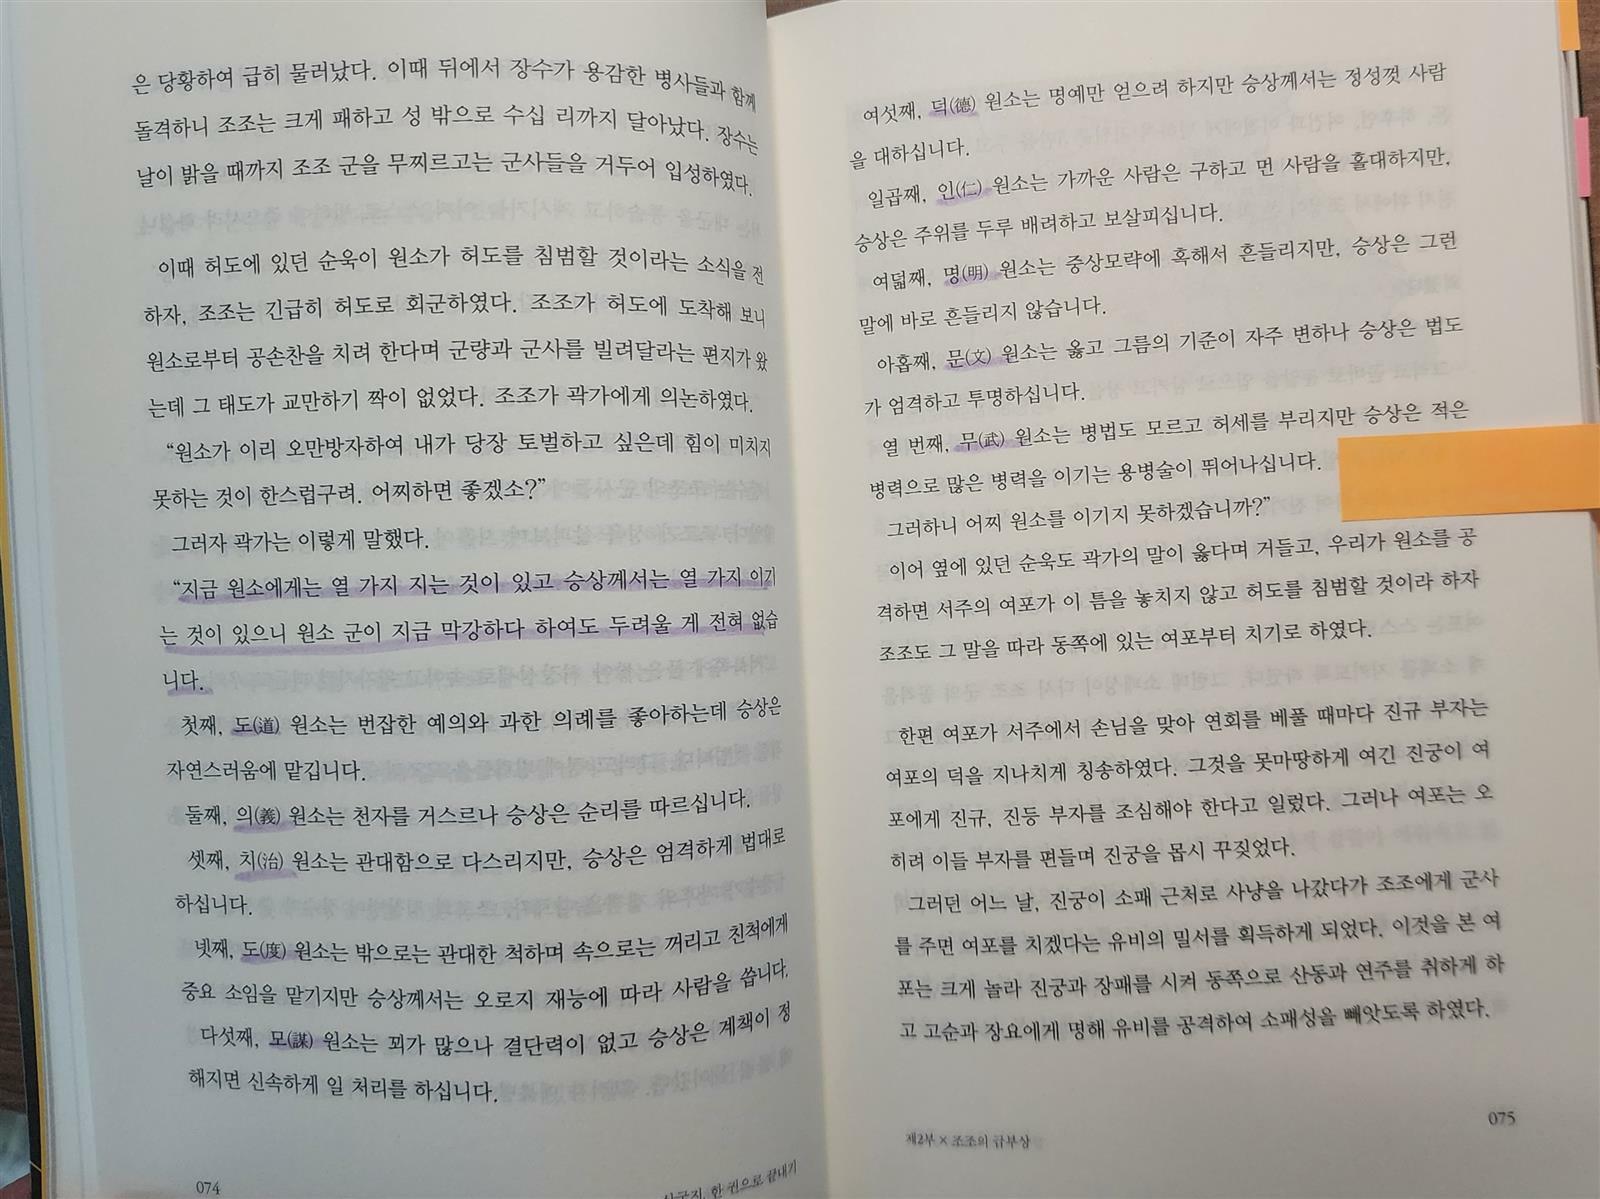 은 당황하여 급히 물러났다. 이때 뒤에서 장수가 용감한 병사들과 함께
돌격하니 조조는 크게 패하고 성 밖으로 수십 리까지 달아났다. 장수는
날이 밝을 때까지 조조 군을 무찌르고는 군사들을 거두어 입성하였다.
이때 허도에 있던 순욱이 원소가 허도를 침범할 것이라는 소식을 전
하자, 조조는 긴급히 허도로 회군하였다. 조조가 허도에 도착해 보니
원소로부터 공손찬을 치려 한다며 군량과 군사를 빌려달라는 편지가 왔
는데 그 태도가 교만하기 짝이 없었다. 조조가 곽가에게 의논하였다.
“원소가 이리 오만방자하여 내가 당장 토벌하고 싶은데 힘이 미치지
못하는 것이 한스럽구려. 어찌하면 좋겠소?”
그러자 곽가는 이렇게 말했다.
“지금 원소에게는 열 가지 지는 것이 있고 승상께서는 열 가지 이기
는 것이 있으니 원소 군이 지금 막강하다 하여도 두려울 게 전혀 없습
니다.
첫째, 도(道) 원소는 번잡한 예의와 과한 의례를 좋아하는데 승상은
자연스러움에 맡깁니다.
둘째, 의(義) 원소는 천자를 거스르나 승상은 순리를 따르십니다.
셋째, 치(治) 원소는 관대함으로 다스리지만, 승상은 엄격하게 법대로
하십니다.
넷째, 도(度) 원소는 밖으로는 관대한 척하며 속으로는 꺼리고 친척에게
중요 소임을 맡기지만 승상께서는 오로지 재능에 따라 사람을 씁니다.
다섯째, 모(謀) 원소는 꾀가 많으나 결단력이 없고 승상은 계책이 정
해지면 신속하게 일 처리를 하십니다.
074
삼국지, 한 권으로 끝내기
여섯째, 덕(德) 원소는 명예만 얻으려 하지만 승상께서는 정성껏 사람
을 대하십니다.
일곱째, 인(仁) 원소는 가까운 사람은 구하고 먼 사람을 홀대하지만,
승상은 주위를 두루 배려하고 보살피십니다.
여덟째, 명(明) 원소는 중상모략에 혹해서 흔들리지만, 승상은 그런
말에 바로 흔들리지 않습니다.
아홉째, 문(文) 원소는 옳고 그름의 기준이 자주 변하나 승상은 법도
가 엄격하고 투명하십니다.
열 번째, 무(武) 원소는 병법도 모르고 허세를 부리지만 승상은 적은
병력으로 많은 병력을 이기는 용병술이 뛰어나십니다.
그러하니 어찌 원소를 이기지 못하겠습니까?”
이어 옆에 있던 순욱도 곽가의 말이 옳다며 거들고, 우리가 원소를 공
격하면 서주의 여포가 이 틈을 놓치지 않고 허도를 침범할 것이라 하자
조조도 그 말을 따라 동쪽에 있는 여포부터 치기로 하였다.
한편 여포가 서주에서 손님을 맞아 연회를 베풀 때마다 진규 부자는
여포의 덕을 지나치게 칭송하였다. 그것을 못마땅하게 여긴 진궁이 여
포에게 진규, 진등 부자를 조심해야 한다고 일렀다. 그러나 여포는 오
히려 이들 부자를 편들며 진궁을 몹시 꾸짖었다.
그러던 어느 날, 진궁이 소패 근처로 사냥을 나갔다가 조조에게 군사
를 주면 여포를 치겠다는 유비의 밀서를 획득하게 되었다. 이것을 본 여
포는 크게 놀라 진궁과 장패를 시켜 동쪽으로 산동과 연주를 취하게 하
고 고순과 장요에게 명해 유비를 공격하여 소패성을 빼앗도록 하였다.
제2부 × 조조의 급부상
075